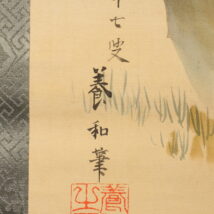 十七叟
養和筆
養